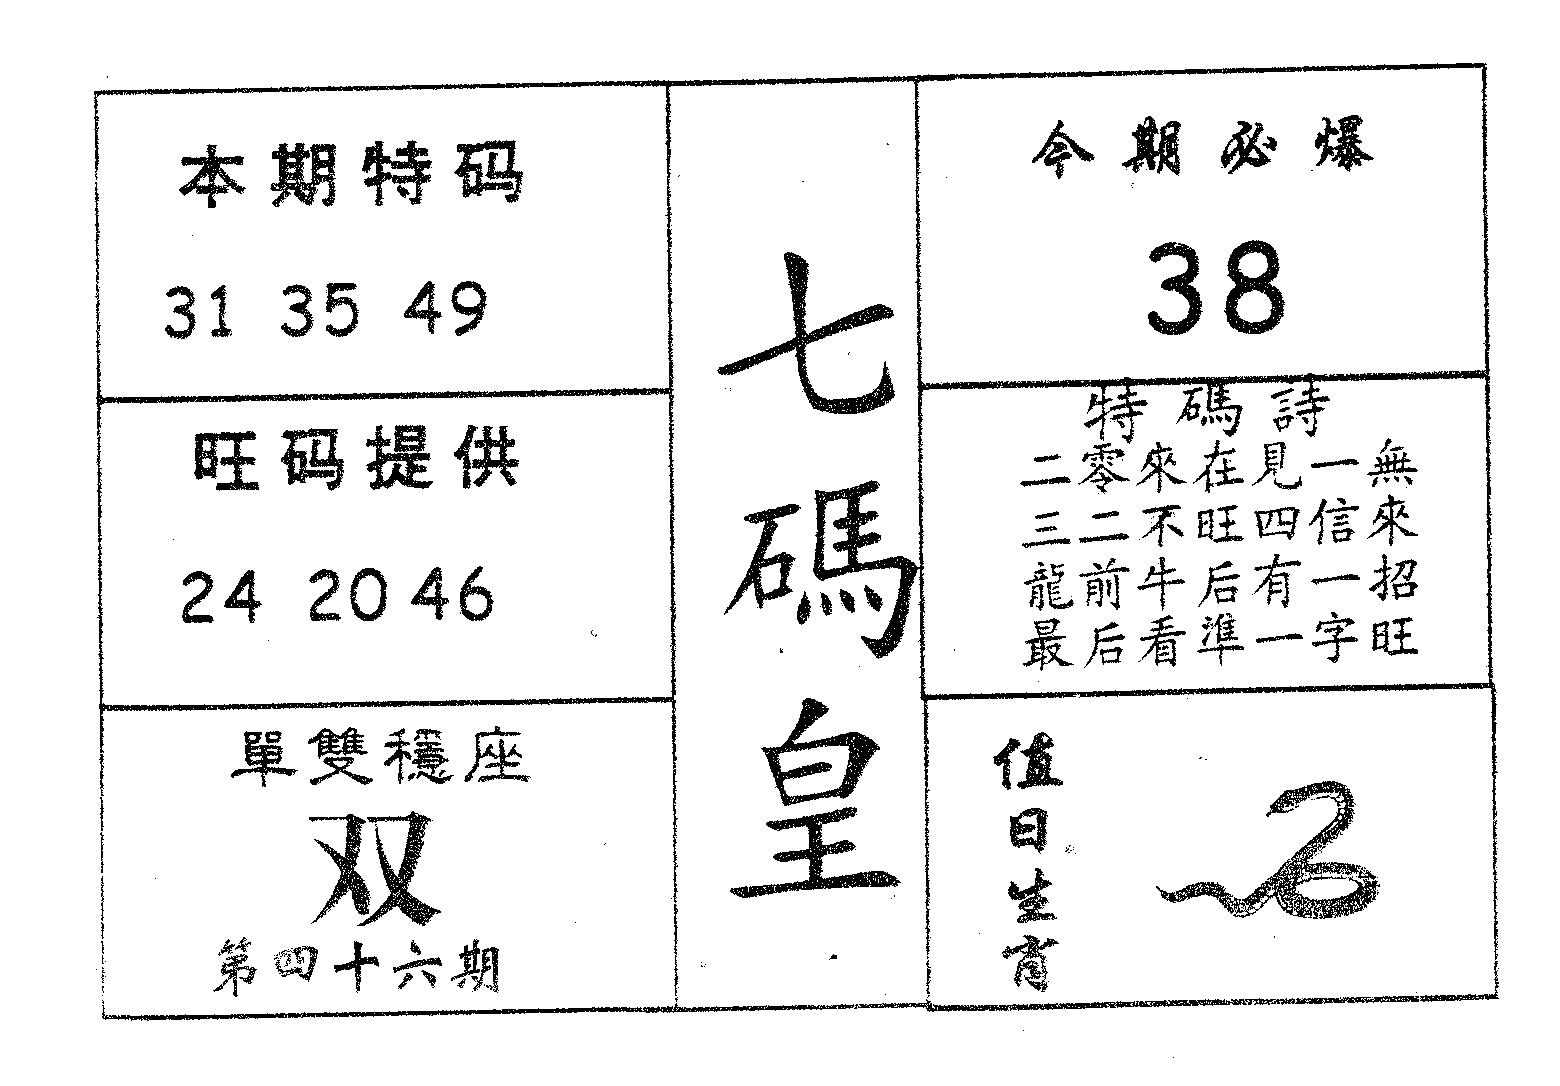 本期特码
31 35 49
旺码提供
24 20 46
單雙穩座
双
第四十六期
七碼皇
今期必爆
38
特碼詩
二零來在見一無
三二不旺四信來
龍前牛后有一招
最后看準一字旺
值日生肖